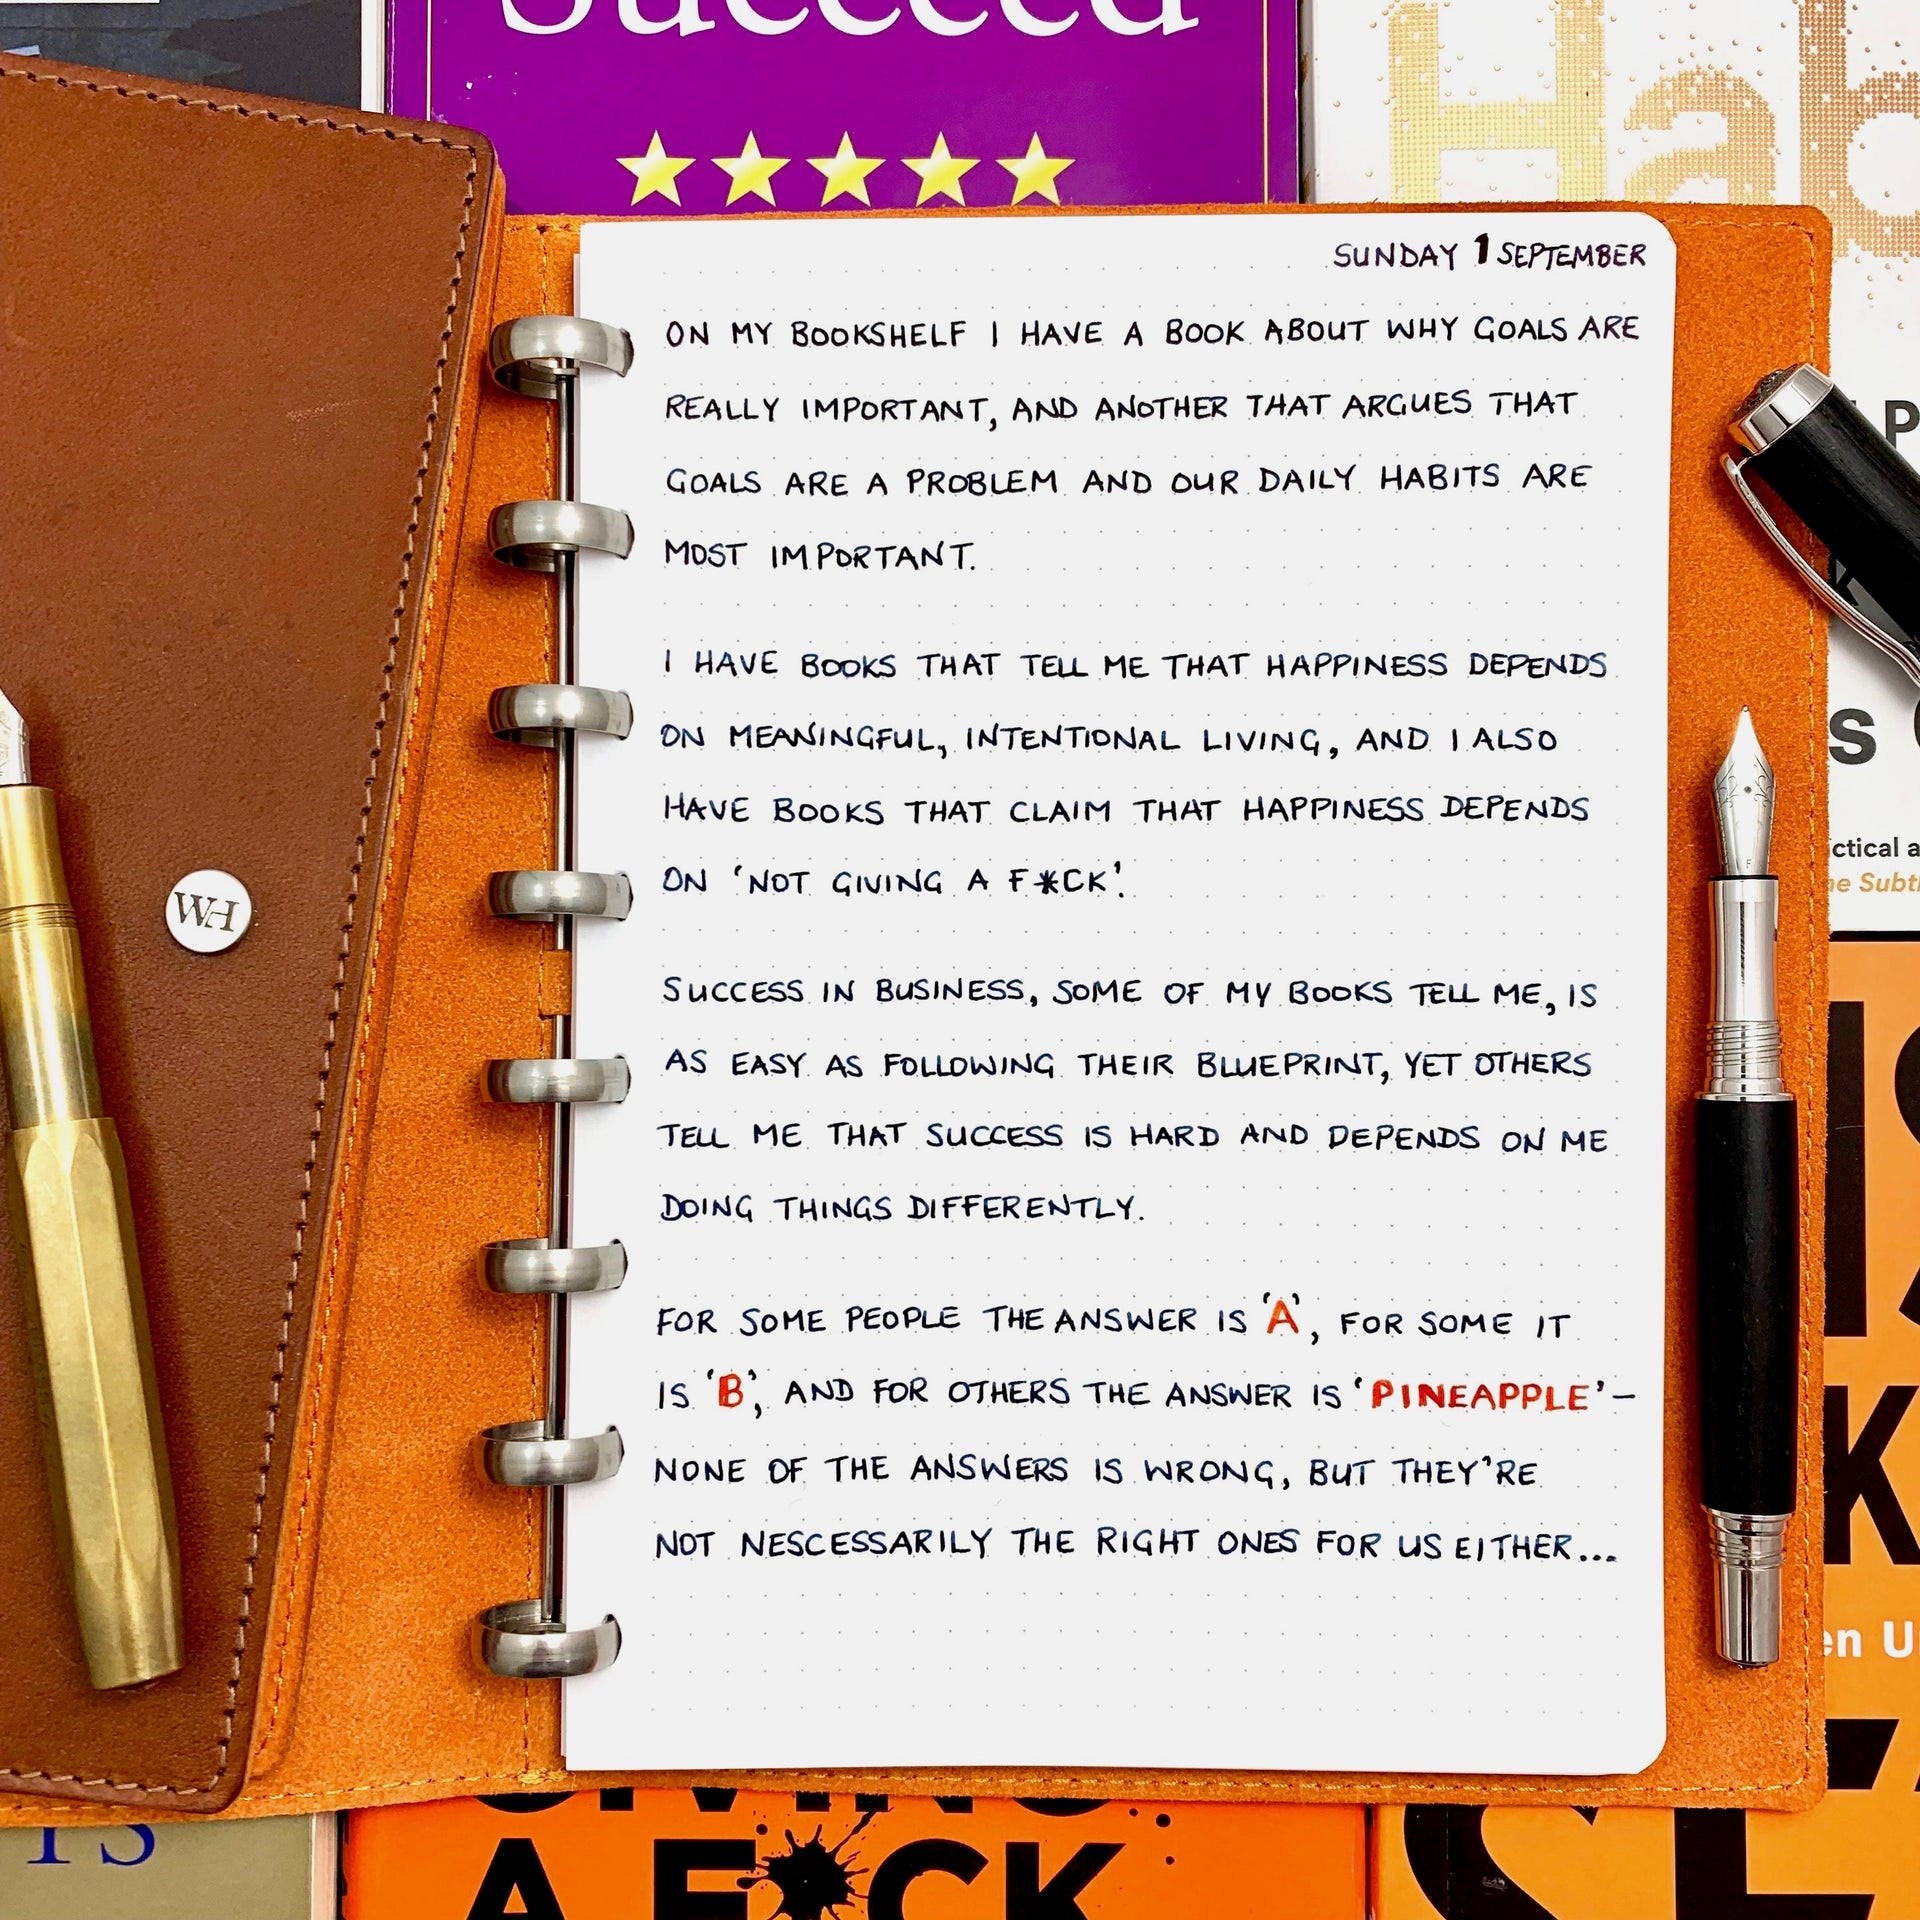 Succeed
Hab
SUNDAY 1 SEPTEMBER
ON MY BOOKSHELF I HAVE A BOOK ABOUT WHY GOALS ARE
REALLY IMPORTANT, AND ANOTHER THAT ARGUES THAT
GOALS ARE A PROBLEM AND OUR DAILY HABITS ARE
MOST IMPORTANT.
I HAVE BOOKS THAT TELL ME THAT HAPPINESS DEPENDS
ON MEANINGFUL, INTENTIONAL LIVING, AND I ALSO
HAVE BOOKS THAT CLAIM THAT HAPPINESS DEPENDS
ON 'NOT GIVING A F*CK'.
SUCCESS IN BUSINESS, SOME OF MY BOOKS TELL ME, IS
AS EASY AS FOLLOWING THEIR BLUEPRINT, YET OTHERS
TELL ME THAT SUCCESS IS HARD AND DEPENDS ON ME
DOING THINGS DIFFERENTLY.
FOR SOME PEOPLE THE ANSWER IS 'A', FOR SOME IT
IS 'B', AND FOR OTHERS THE ANSWER IS 'PINEAPPLE' –
NONE OF THE ANSWERS IS WRONG, BUT THEY'RE
NOT NESCESSARILY THE RIGHT ONES FOR US EITHER...
WH
P
s
ctical a
ne Subtl
IS
K
en U
GIVING
A F*CK